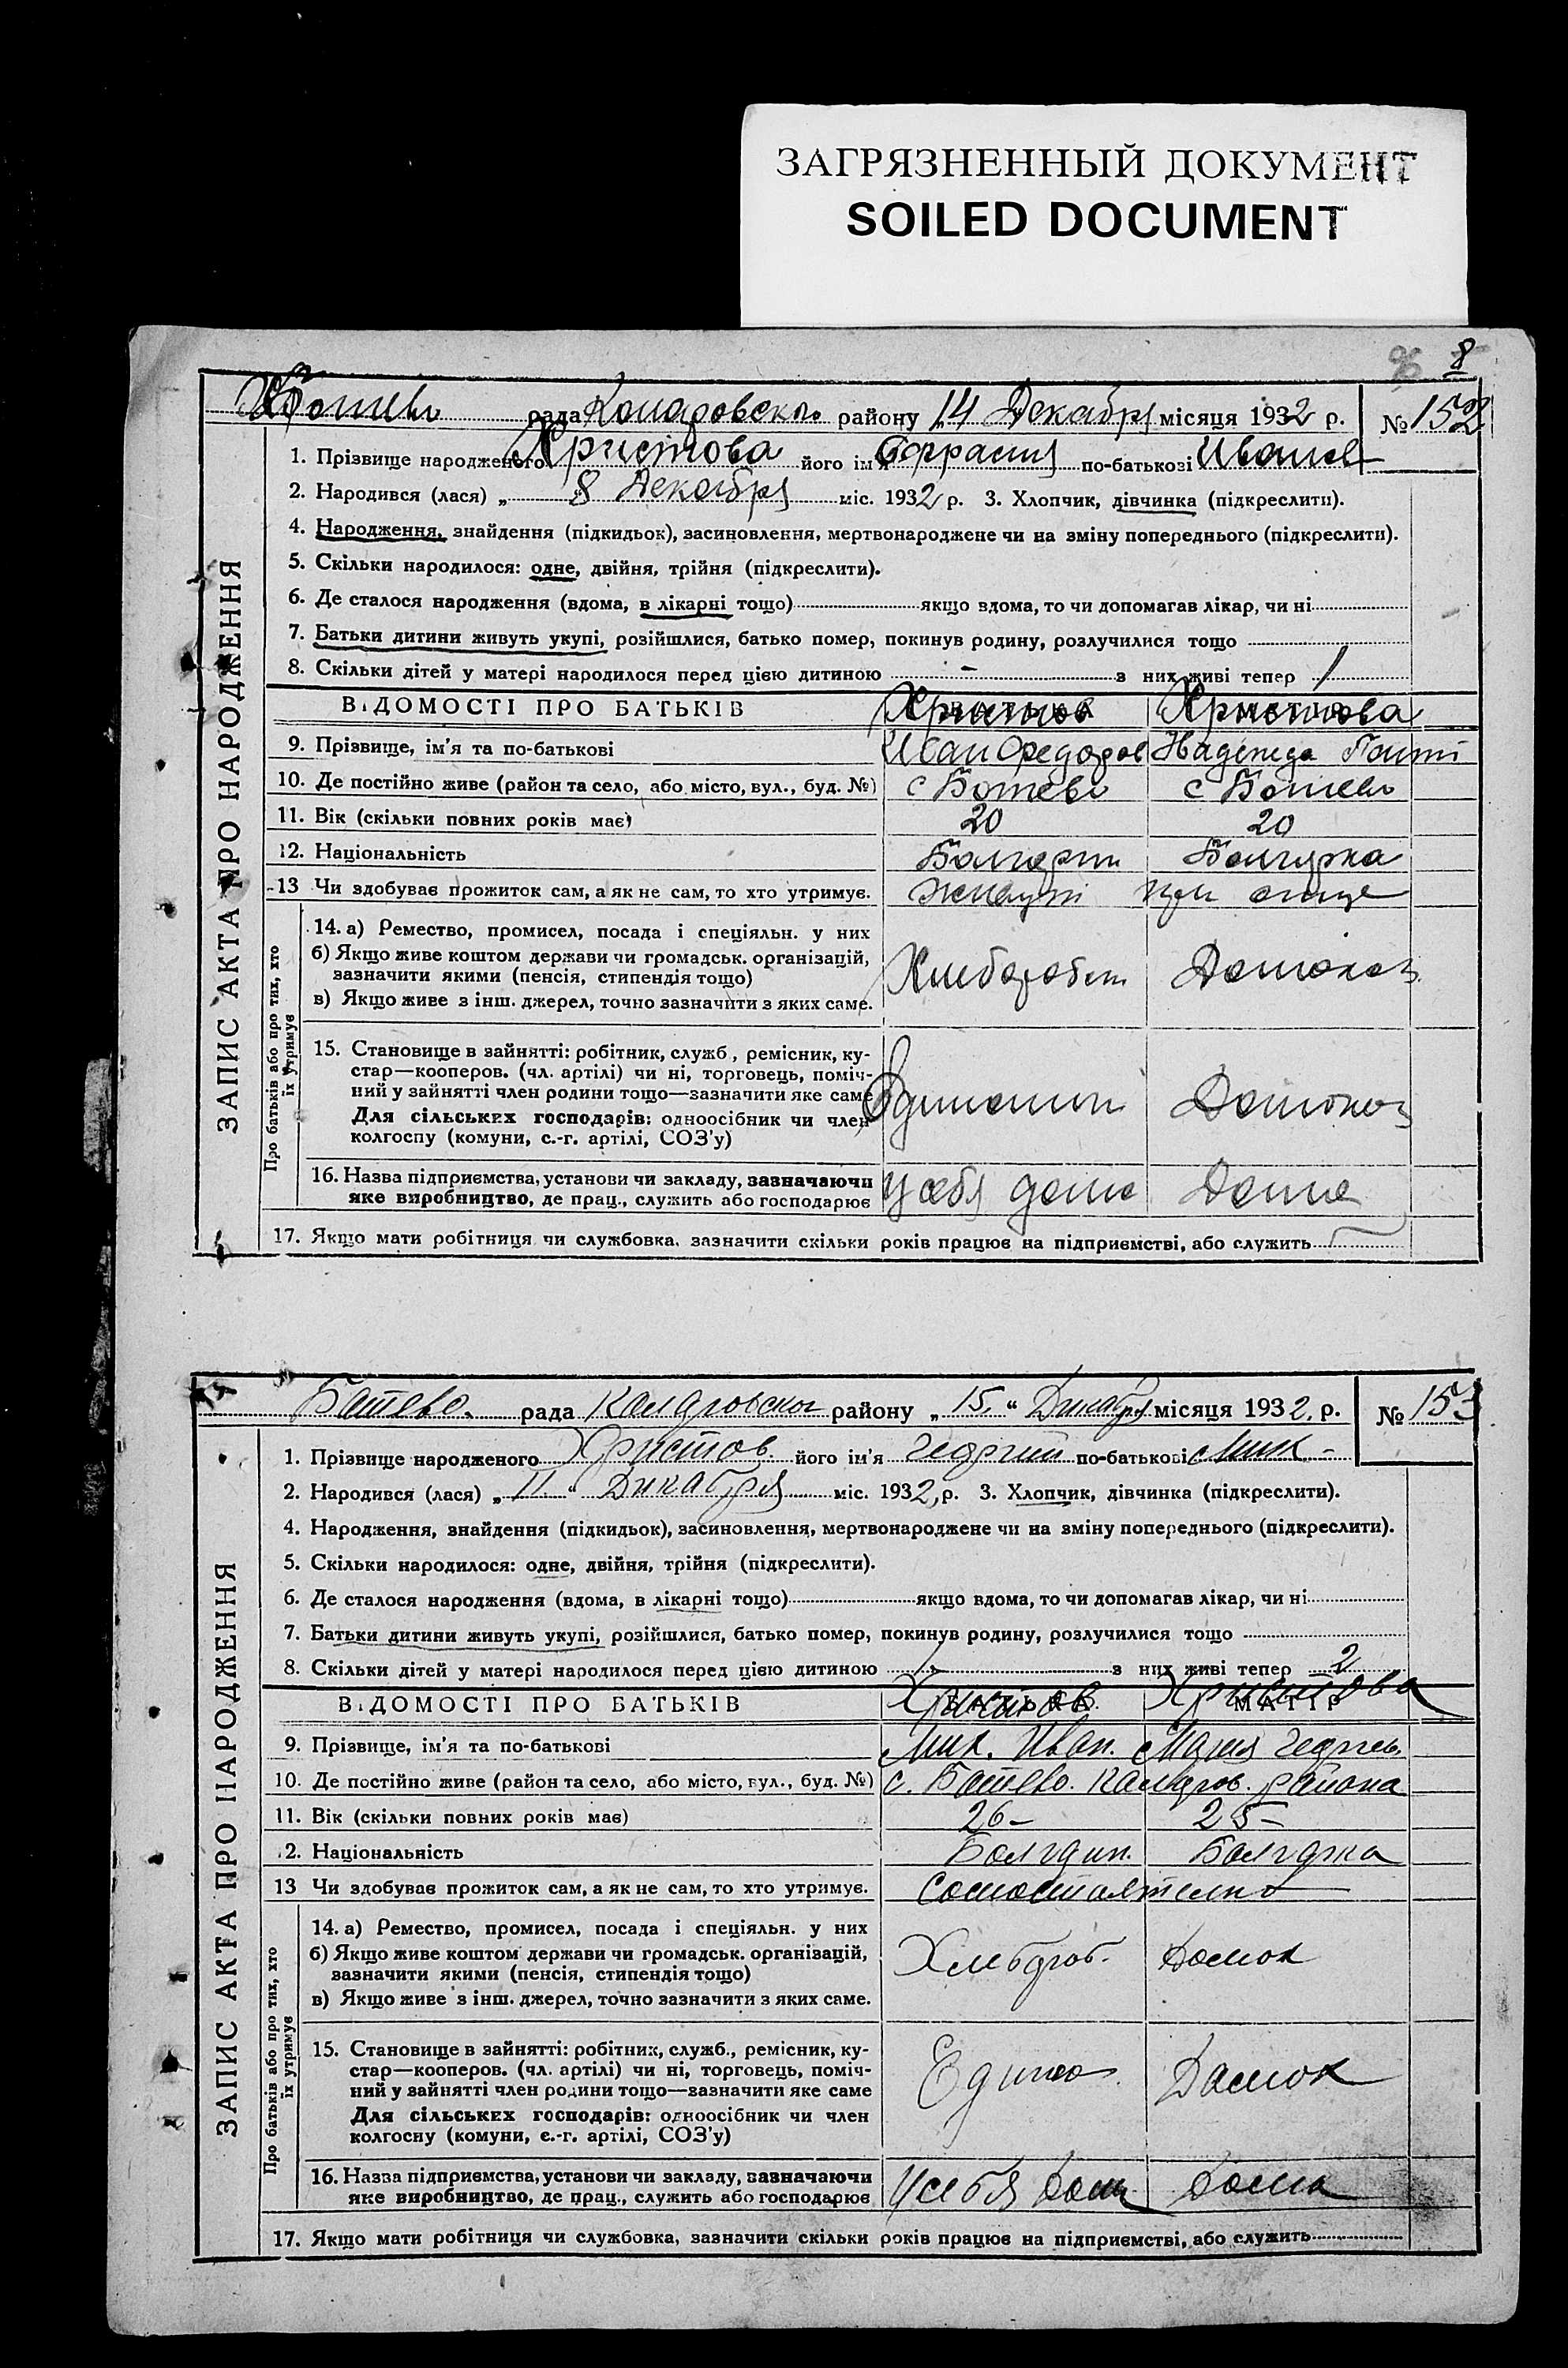 ЗАГРЯЗНЕННЫЙ ДОКУМЕНТ
SOILED DOCUMENT
8
рада района району „14 Декабря місяця 1932 р. № 152
1. Прізвище народженого Христова його ім'я по-батькові Иванов
2. Народився (лася) „ 8 Декабря міс. 1932 р. 3. Хлопчик, дівчинка (підкреслити).
4. Народження, знайдення (підкидьок), засиновлення, мертвонароджене чи на зміну попереднього (підкреслити).
5. Скільки народилося: одне, двійня, трійня (підкреслити).
6. Де сталося народження (вдома, в лікарні тощо) якщо вдома, то чи допомагав лікар, чи ні
7. Батьки дитини живуть укупі, розійшлися, батько помер, покинув родину, розлучилися тощо
8. Скільки дітей у матері народилося перед цією дитиною – з них живі тепер 1
ВІДОМОСТІ ПРО БАТЬКІВ Христов Христова
9. Прізвище, ім'я та по-батькові Иван Федоров Надежда
10. Де постійно живе (район та село, або місто, вул., буд. №) с Ботево с Ботево
11. Вік (скільки повних років має) 20 20
12. Національність Болгарин Болгарка
13 Чи здобуває прожиток сам, а як не сам, то хто утримує. Живут при отце
14. а) Ремество, промисел, посада і спеціяльн. у них
б) Якщо живе коштом держави чи громадськ. організацій,
зазначити якими (пенсія, стипендія тощо)
в) Якщо живе з інш. джерел, точно зазначити з яких саме.
Хлебороб Домохоз
15. Становище в зайнятті: робітник, служб., ремісник, ку-
стар—кооперов. (чл. артілі) чи ні, торговець, поміч-
ний у зайнятті член родини тощо—зазначити яке саме
Для сільських господарів: одноосібник чи член
колгоспу (комуни, с.-г. артілі, СОЗ'у)
Домохоз
16. Назва підприємства, установи чи закладу, зазначаючи
яке виробництво, де прац., служить або господарює
у себя дома Дома
17. Якщо мати робітниця чи службовка, зазначити скільки років працює на підприємстві, або служить
ЗАПИС АКТА ПРО НАРОДЖЕННЯ
Про батьків або про тих, хто
їх утримує
Ботево рада району „ 15. “ Декабря місяця 1932. р. № 153
1. Прізвище народженого Христов його ім'я Георгий по-батькові Мих. –
2. Народився (лася) „ 11. “ Декабря міс. 1932, р. 3. Хлопчик, дівчинка (підкреслити).
4. Народження, знайдення (підкидьок), засиновлення, мертвонароджене чи на зміну попереднього (підкреслити).
5. Скільки народилося: одне, двійня, трійня (підкреслити).
6. Де сталося народження (вдома, в лікарні тощо) якщо вдома, то чи допомагав лікар, чи ні
7. Батьки дитини живуть укупі, розійшлися, батько помер, покинув родину, розлучилися тощо
8. Скільки дітей у матері народилося перед цією дитиною 1. з них живі тепер 2
ВІДОМОСТІ ПРО БАТЬКІВ Христов Христова МАТІР
9. Прізвище, ім'я та по-батькові Мих. Иван. Мария Георгиев.
10. Де постійно живе (район та село, або місто, вул., буд. №) с. Ботево. района
11. Вік (скільки повних років має) 26 – 25 –
12. Національність Болгарин. Болгарка
13 Чи здобуває прожиток сам, а як не сам, то хто утримує. Самостоятельно
14. а) Ремество, промисел, посада і спеціяльн. у них
б) Якщо живе коштом держави чи громадськ. організацій,
зазначити якими (пенсія, стипендія тощо)
в) Якщо живе з інш. джерел, точно зазначити з яких саме.
Хлебороб. Домох
15. Становище в зайнятті: робітник, служб., ремісник, ку-
стар—кооперов. (чл. артілі) чи ні, торговець, поміч-
ний у зайнятті член родини тощо—зазначити яке саме
Для сільських господарів: одноосібник чи член
колгоспу (комуни, с.-г. артілі, СОЗ'у)
Домох
16. Назва підприємства, установи чи закладу, зазначаючи
яке виробництво, де прац., служить або господарює
У себя дома Дома
17. Якщо мати робітниця чи службовка, зазначити скільки років працює на підприємстві, або служить
ЗАПИС АКТА ПРО НАРОДЖЕННЯ
Про батьків або про тих, хто
їх утримує